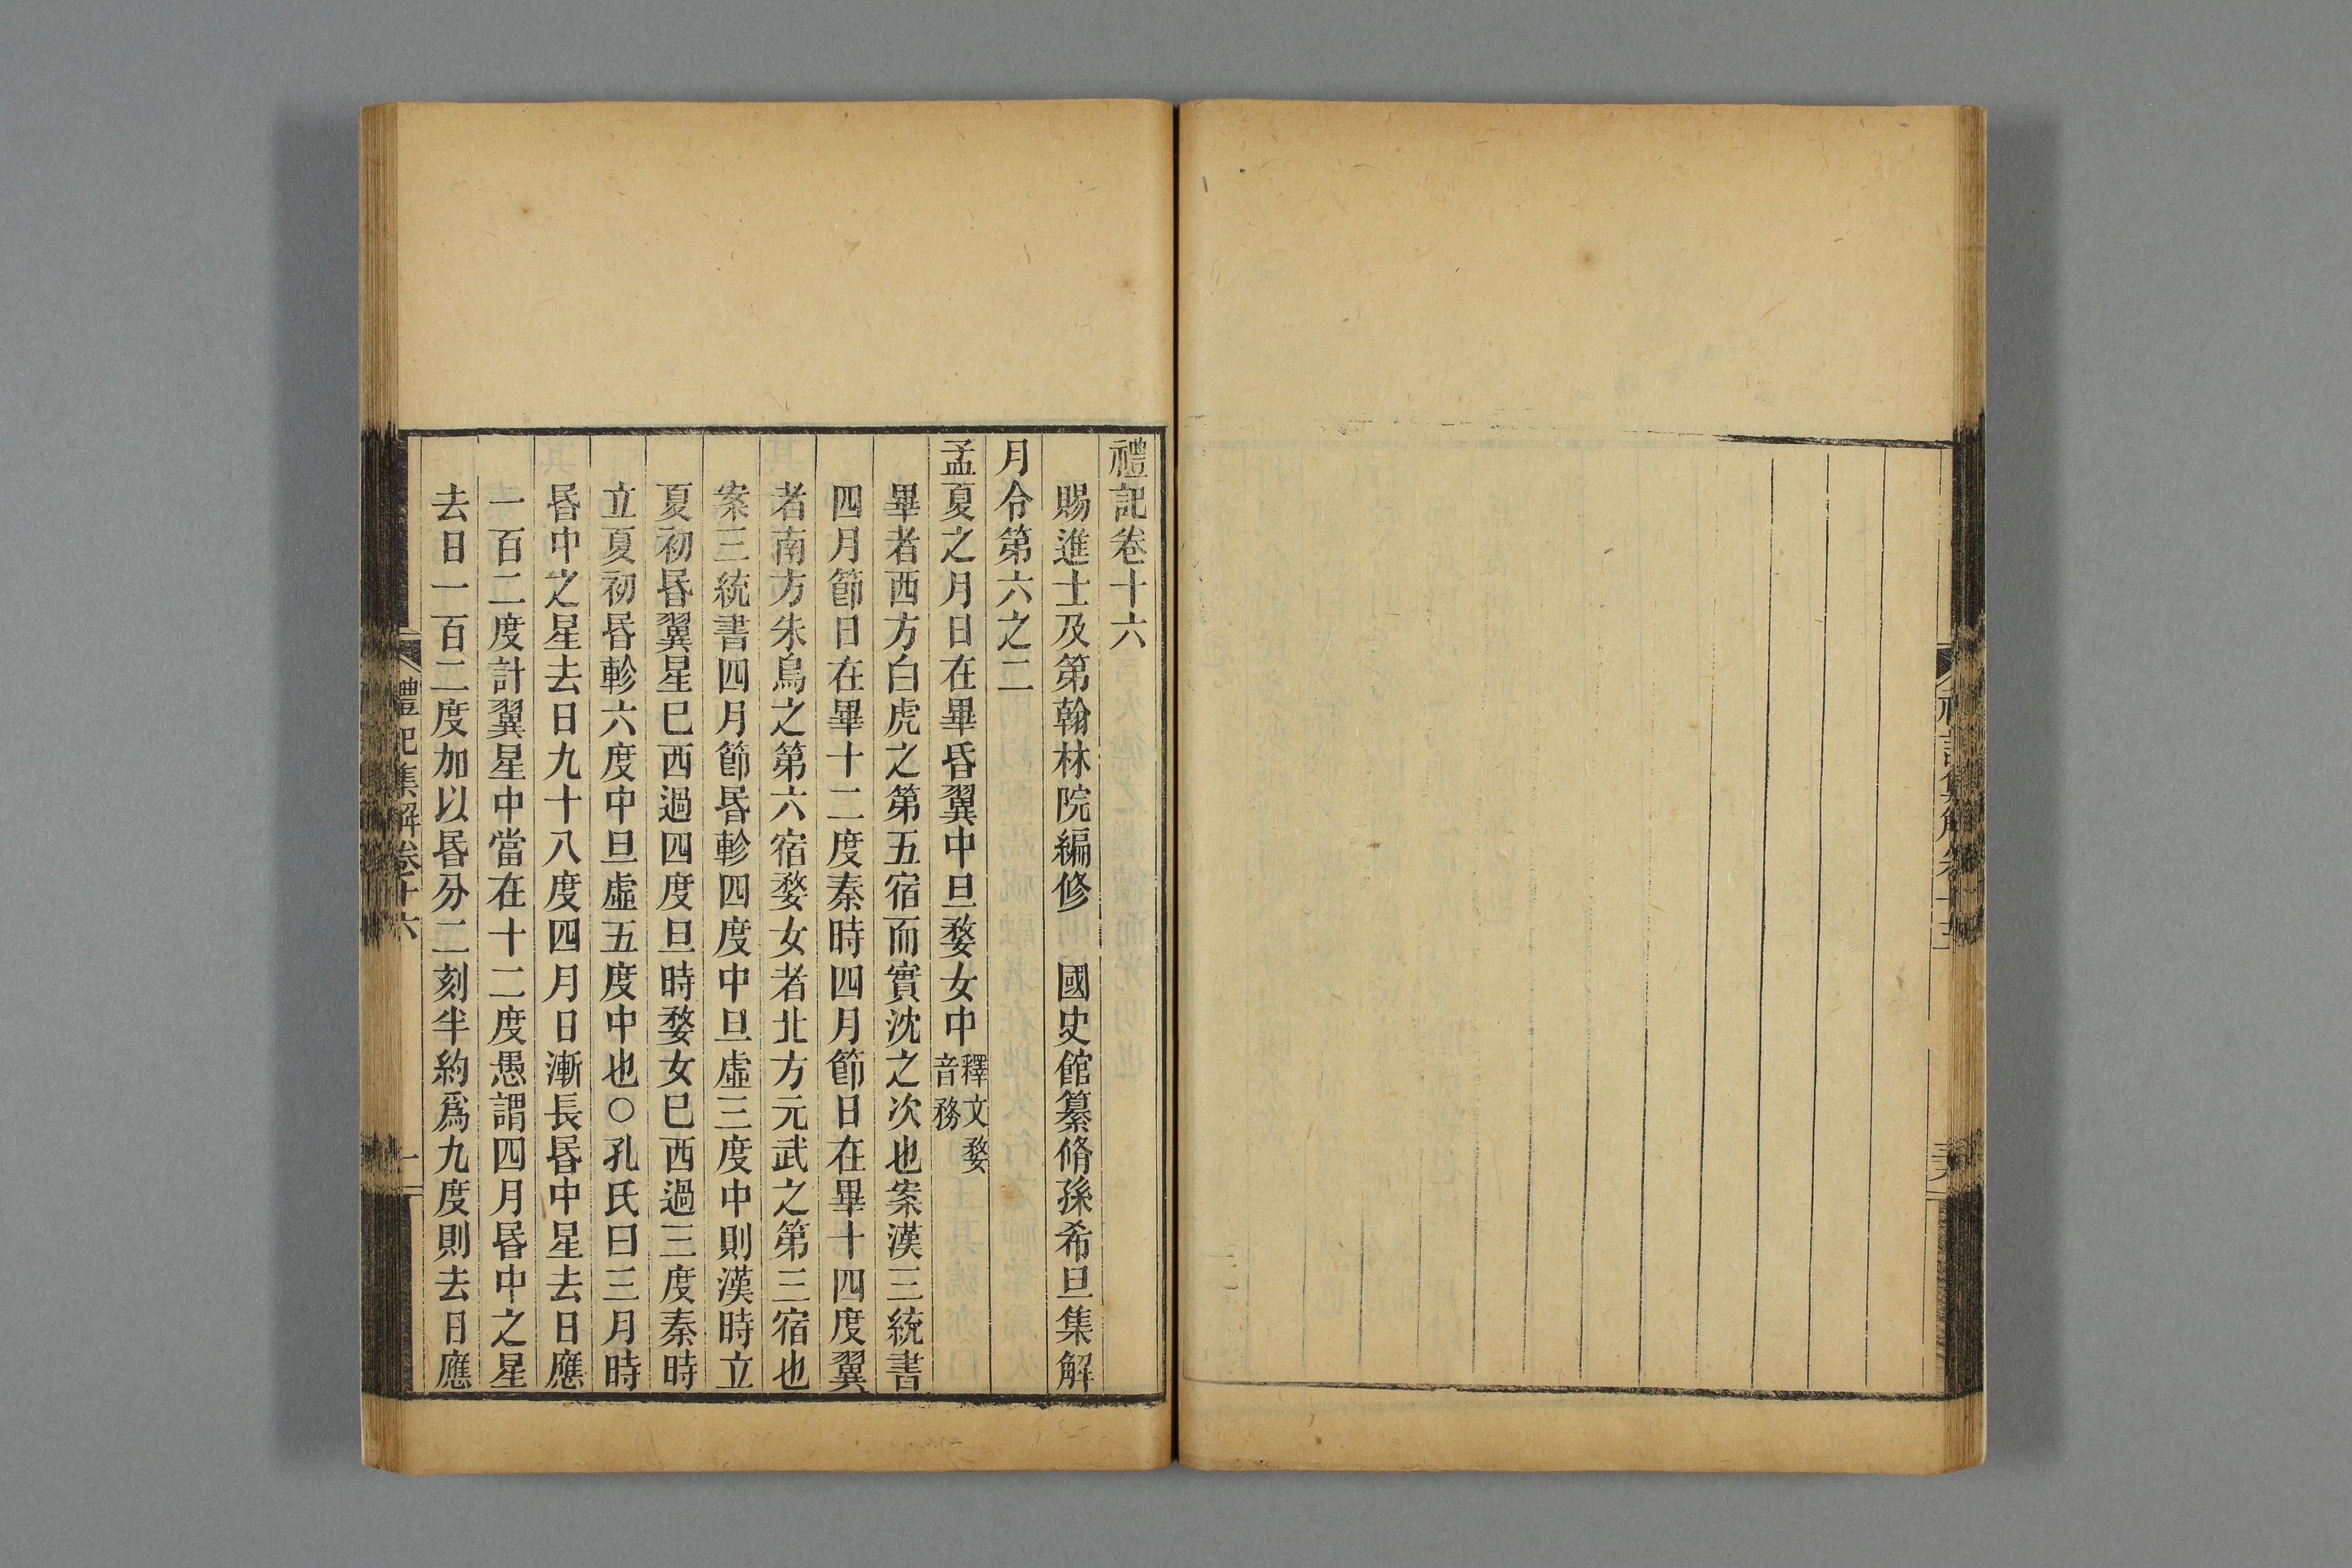 禮記卷十六
賜進士及第翰林院編修　國史館纂脩孫希旦集解
月令第六之二
孟夏之月日在畢昏翼中旦婺女中釋文婺音務
畢者西方白虎之第五宿而實沈之次也案漢三統書
四月節日在畢十二度秦時四月節日在畢十四度翼
者南方朱鳥之第六宿婺女者北方元武之第三宿也
案三統書四月節昬軫四度中旦虛三度中則漢時立
夏初昬翼星巳西過四度旦時婺女巳西過三度秦時
立夏初昬軫六度中旦虛五度中也○孔氏曰三月時
昬中之星去日九十八度四月日漸長昬中星去日應
一百二度計翼星中當在十二度愚謂四月昬中之星
去日一百二度加以昬分二刻半約爲九度則去日應
禮記集解卷十六
一